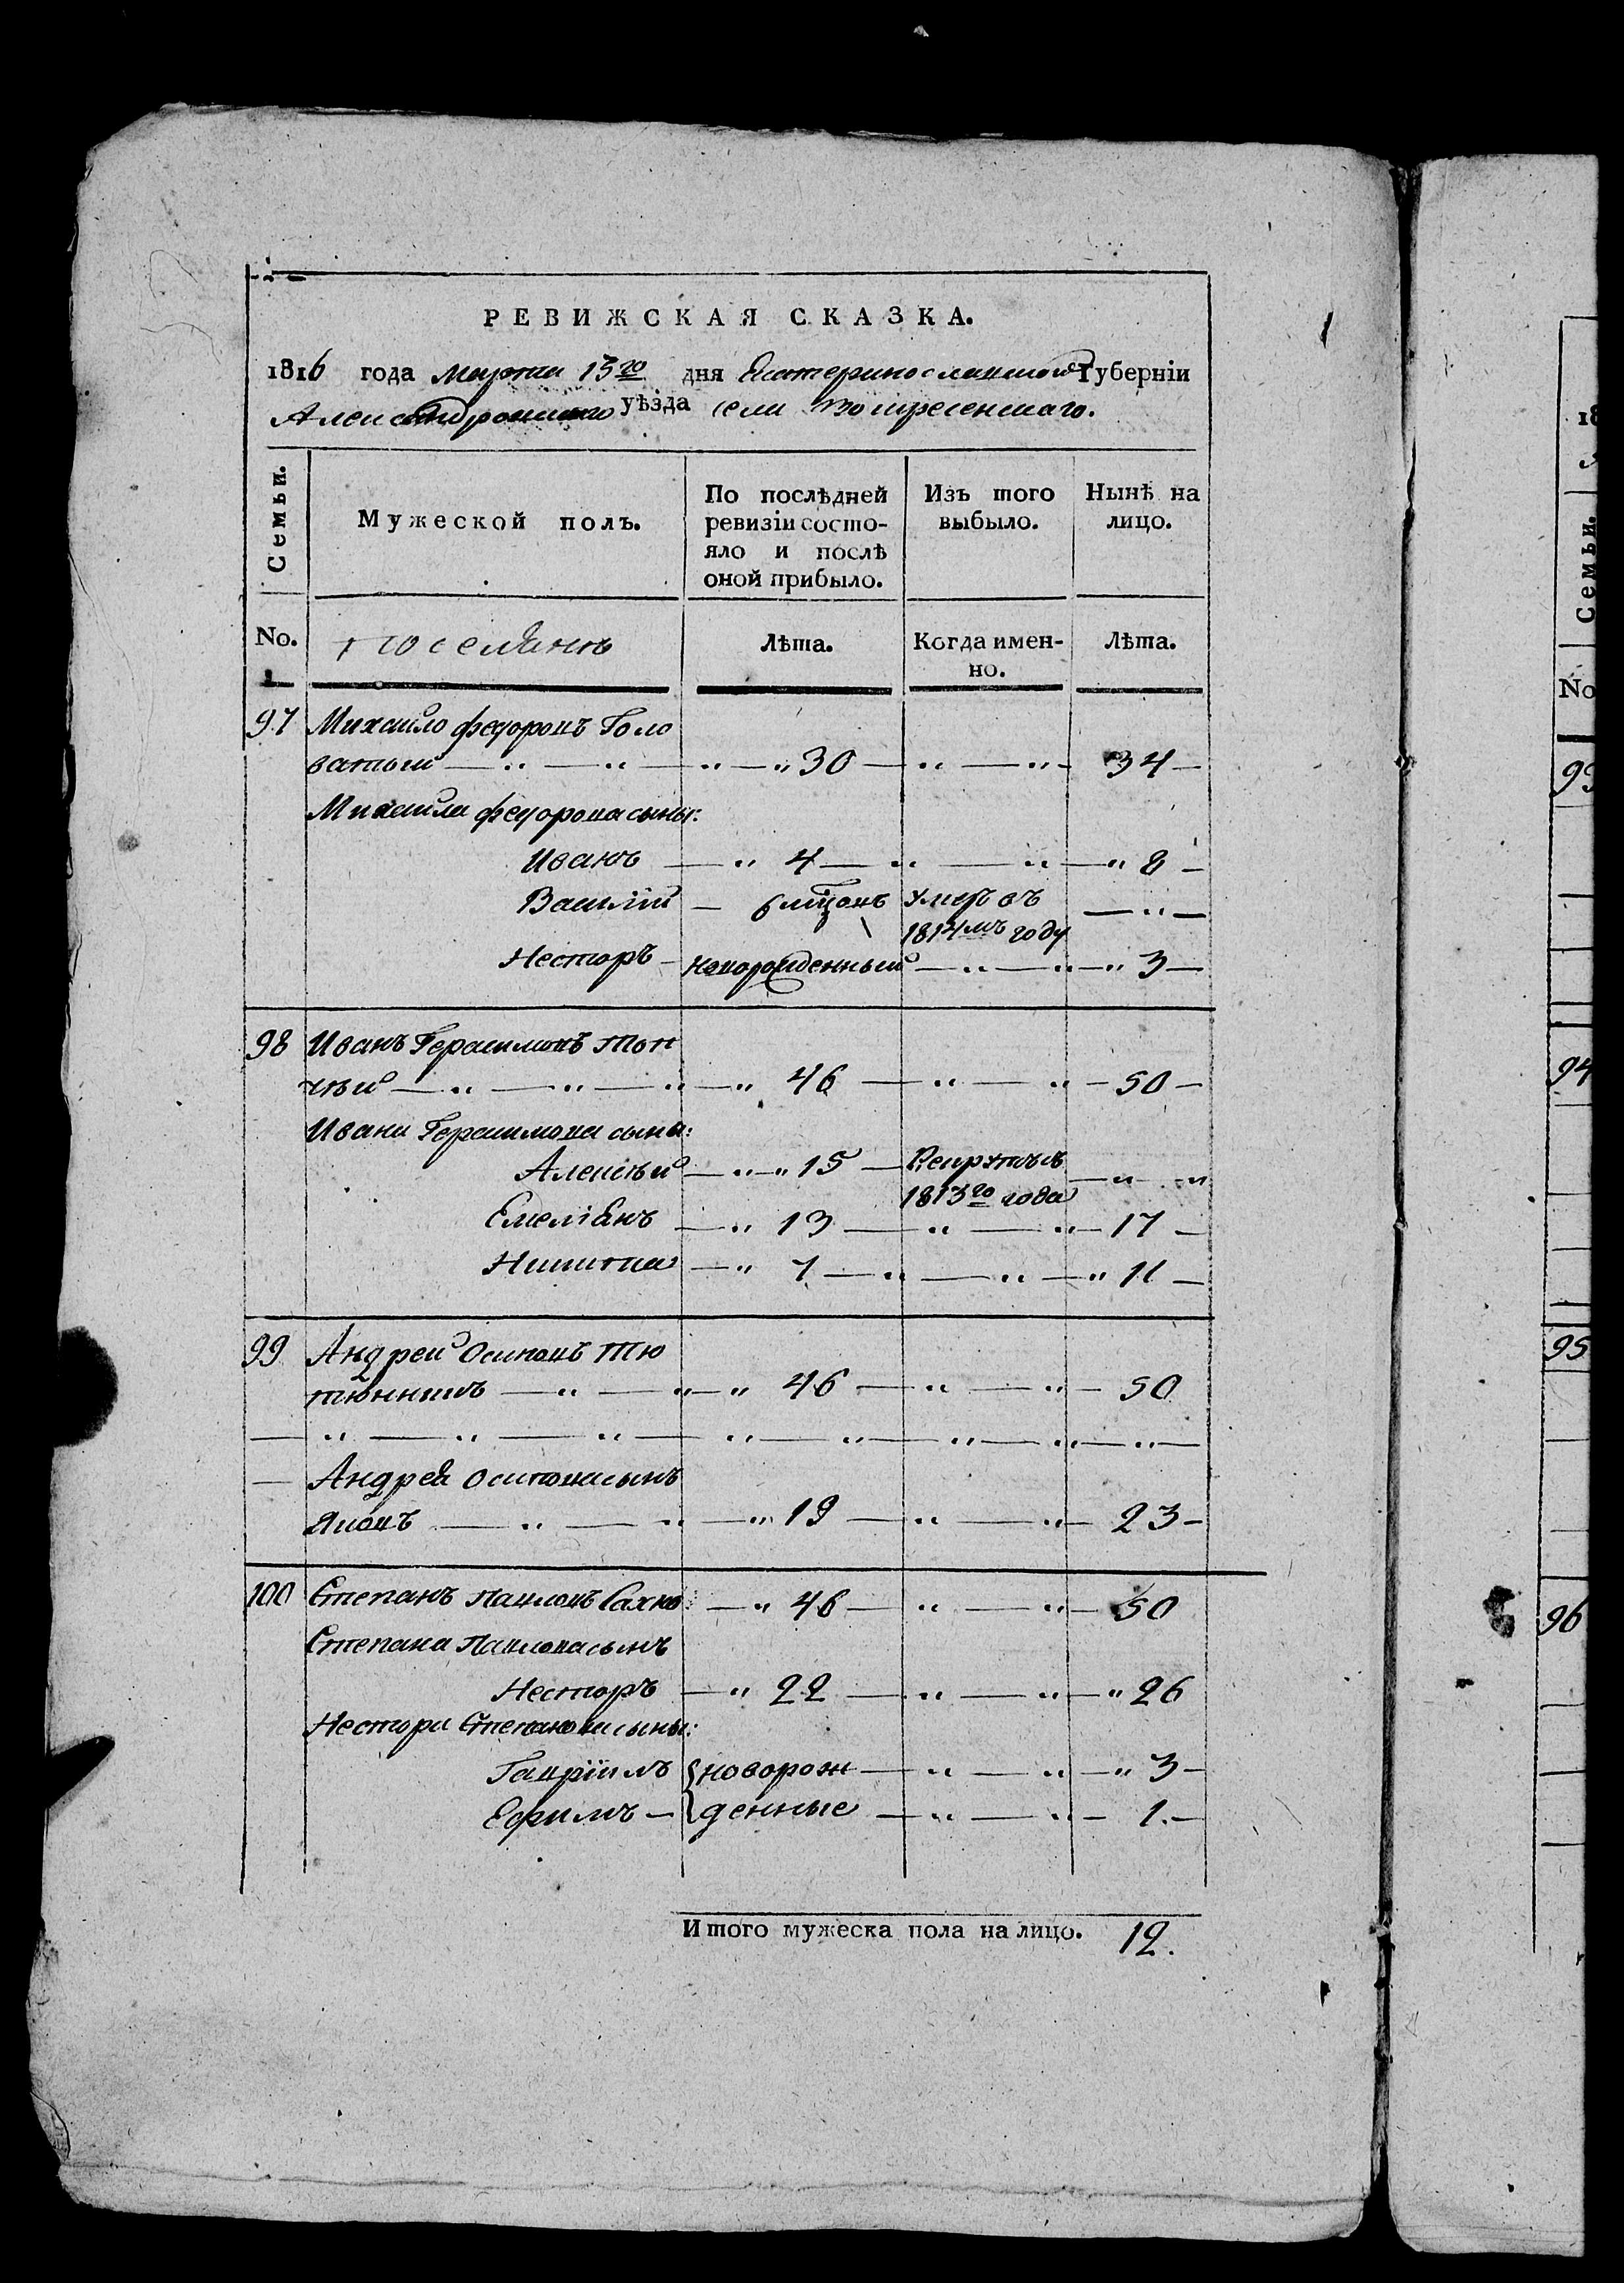 РЕВИЖСКАЯ СКАЗКА.
1816 года Марта 15го дня Екатеринославской Губерніи
Александровского уѣзда села Воскресенскаго.
Семьи.
Мужеской полъ.
По послѣдней ревизіи состо-
яло и послѣ
оной прибыло.
Изъ того
выбыло.
Нынѣ на
лицо.
No.
Поселянъ
Лѣта.
Когда имен-
но.
Лѣта.
97 Михаило Федоровъ Голо
ватый — " — " — " — " 30 — " — " — 34 —
Михаила Федорова сыны:
Иванъ — " 4 — " — " — " 8 —
Василій — 6 мцовъ Умеръ въ — " —
1814мъ году
Несторъ — новорожденный — " — " — " 3 —
98 Иванъ Герасимовъ
— " — " — " — " 46 — " — " — 50 —
Ивана Герасимова сыны:
Алексѣй — " — " 15 — Рекрутъ съ — " — "
1813го года
Емеліянъ — " 13 — " — " — 17 —
Никита — " 7 — " — " — " 11 —
99 Андрей Осиповъ Тю
тюнникъ — " — " — " 46 — " — " — 50
— " — " — " — " — " — " — " — " —
— Андрея Осипова сынъ
Яковъ — " — " — " 19 — " — " — 23 —
100 Степанъ Павловъ Сахно: — " 46 — " — " — 50
Степана Павлова сынъ
Несторъ — " 22 — " — " — " 26
Нестора Степанова сыны:
Гавріилъ { новорож — " — " — " 3 —
Ефимъ — { денные — " — " — 1. —
Итого мужеска пола на лицо. 12.
18
Семьи.
No
93
94
95
96